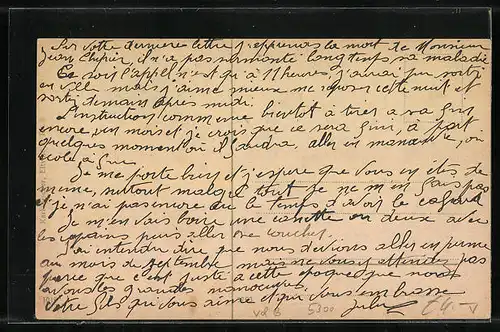 Sur votre dernière lettre j'apprenais la mort de Monsieur
Jean il n'a pas surmonté longtemps sa maladie
Ce soir l'appel n'est qu'à 11 heures j'aurai pu sortir
en ville mais j'aime mieux me reposer cette nuit et
sortir demain après midi.
L'instruction commence bientôt à tirer à sa fin
encore un mois et je crois que ce sera fini, à part
quelques moments où il faudra aller en manœuvre, ou
école à feu.
Je me porte bien et j'espère que vous en êtes de
même, surtout malgré tout je ne m'en fais pas
et je n'ai pas encore eu le temps d'avoir le cafard
Je m'en vais boire une canette ou deux avec
les copains puis aller me coucher.
J'ai entendu dire que nous devions aller en perme
au mois de septembre mais ne vous y attendez pas
parce que c'est juste à cette époque que nous
avons les grandes manœuvres.
Votre fils qui vous aime et qui vous embrasse
Jules
5300